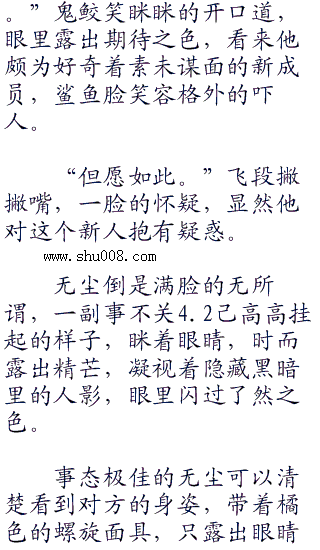 。”鬼鲛笑眯眯的开口道，
眼里露出期待之色，看来他
颇为好奇着素未谋面的新成
员，鲨鱼脸笑容格外的吓
人。
“但愿如此。”飞段撇
撇嘴，一脸的怀疑，显然他
对这个新人抱有疑惑。
www.shu008.com
无尘倒是满脸的无所
谓，一副事不关4.2己高高挂
起的样子，眯着眼睛，时而
露出精芒，凝视着隐藏黑暗
里的人影，眼里闪过了然之
色。
事态极佳的无尘可以清
楚看到对方的身姿，带着橘
色的螺旋面具，只露出眼睛